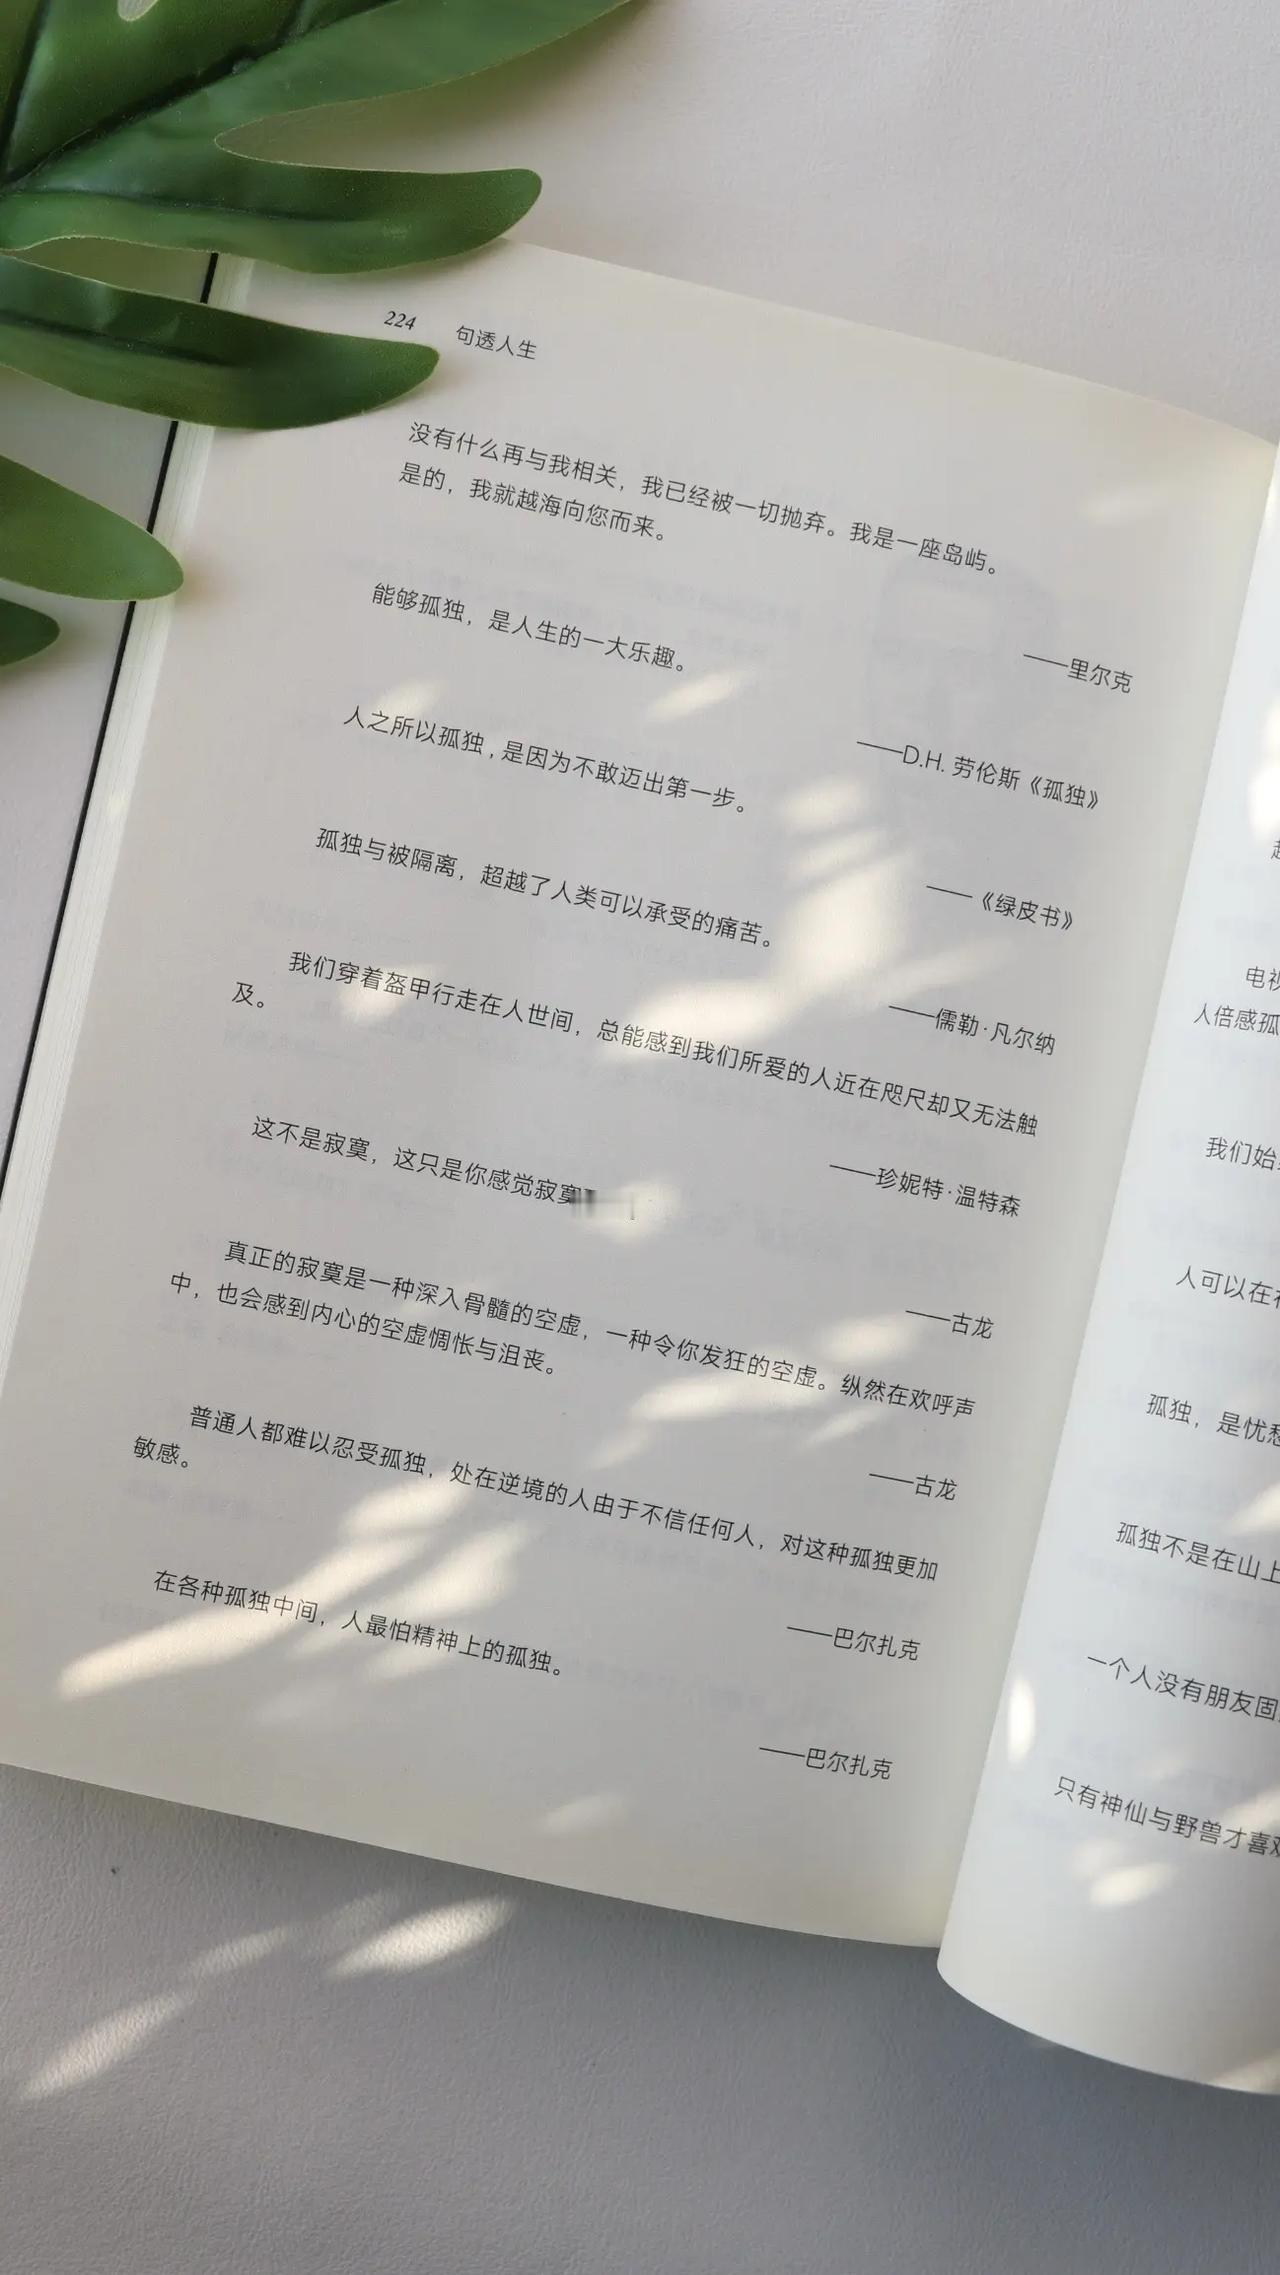 224 句透人生
没有什么再与我相关，我已经被一切抛弃。我是一座岛屿。
是的，我就越海向您而来。
——里尔克
能够孤独，是人生的一大乐趣。
——D.H. 劳伦斯《孤独》
人之所以孤独，是因为不敢迈出第一步。
——《绿皮书》
孤独与被隔离，超越了人类可以承受的痛苦。
——儒勒·凡尔纳
我们穿着盔甲行走在人世间，总能感到我们所爱的人近在咫尺却又无法触
及。
——珍妮特·温特森
这不是寂寞，这只是你感觉寂寞
——古龙
真正的寂寞是一种深入骨髓的空虚，一种令你发狂的空虚。纵然在欢呼声
中，也会感到内心的空虚惆怅与沮丧。
——古龙
普通人都难以忍受孤独，处在逆境的人由于不信任何人，对这种孤独更加
敏感。
——巴尔扎克
在各种孤独中间，人最怕精神上的孤独。
——巴尔扎克
电视
人倍感孤
我们始
人可以在
孤独，是忧愁
孤独不是在山上
一个人没有朋友固
只有神仙与野兽才喜欢